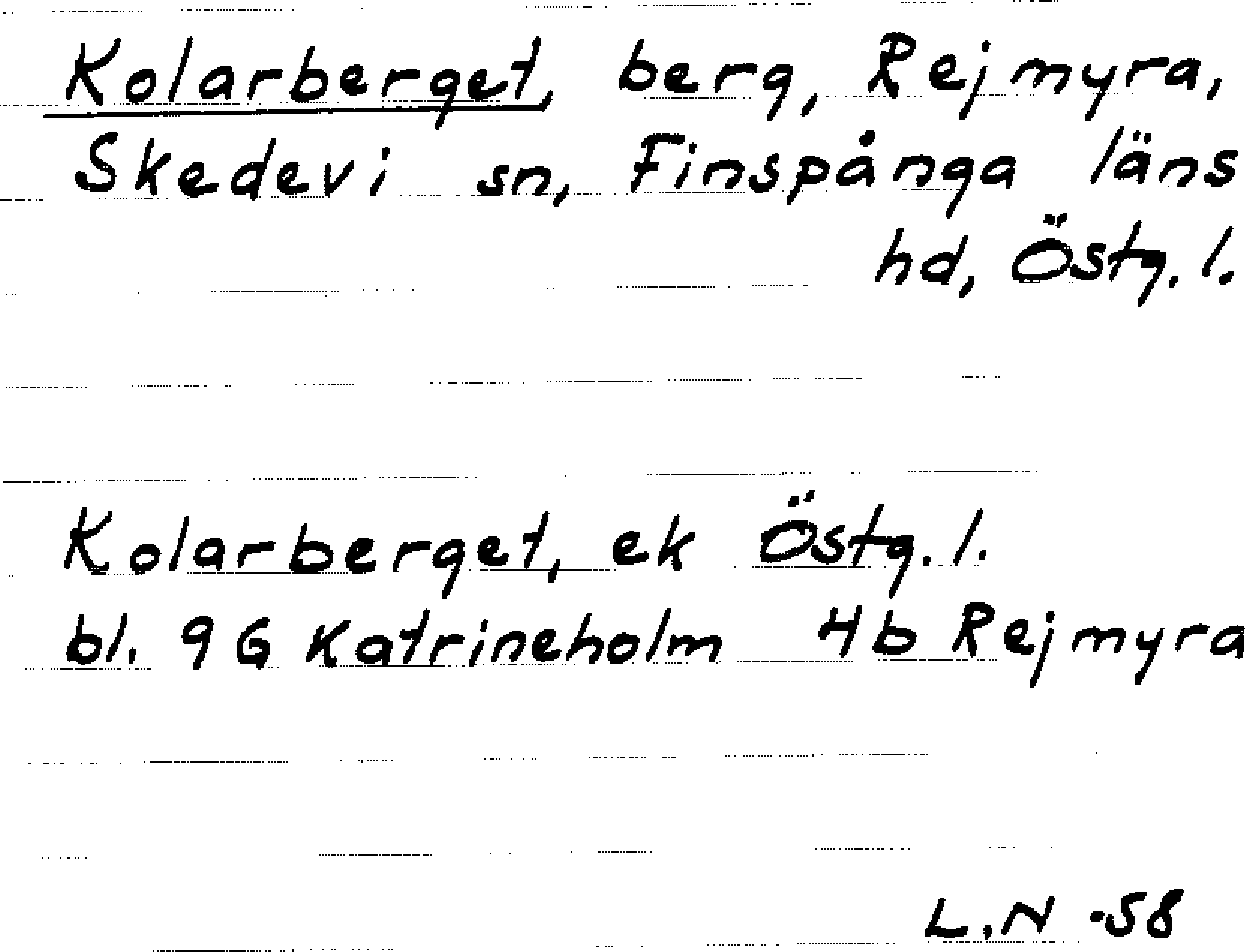 Kolarberget, berg, Rejmyra,
Skedevi sn, Finspånga läns
hd, Östg. l.
Kolarberget, ek Östg. l.
bl. 9G Katrineholm 4b Rejmyra
L.N -58